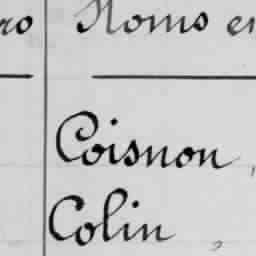 ro Noms et
Coisnon,
Colin,